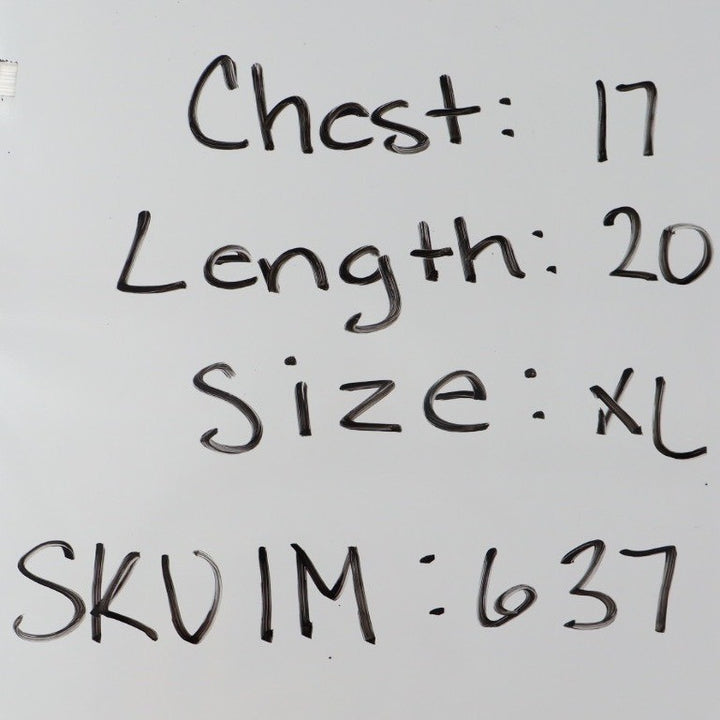 Chest: 17
Length: 20
Size: XL
SKU IM: 637